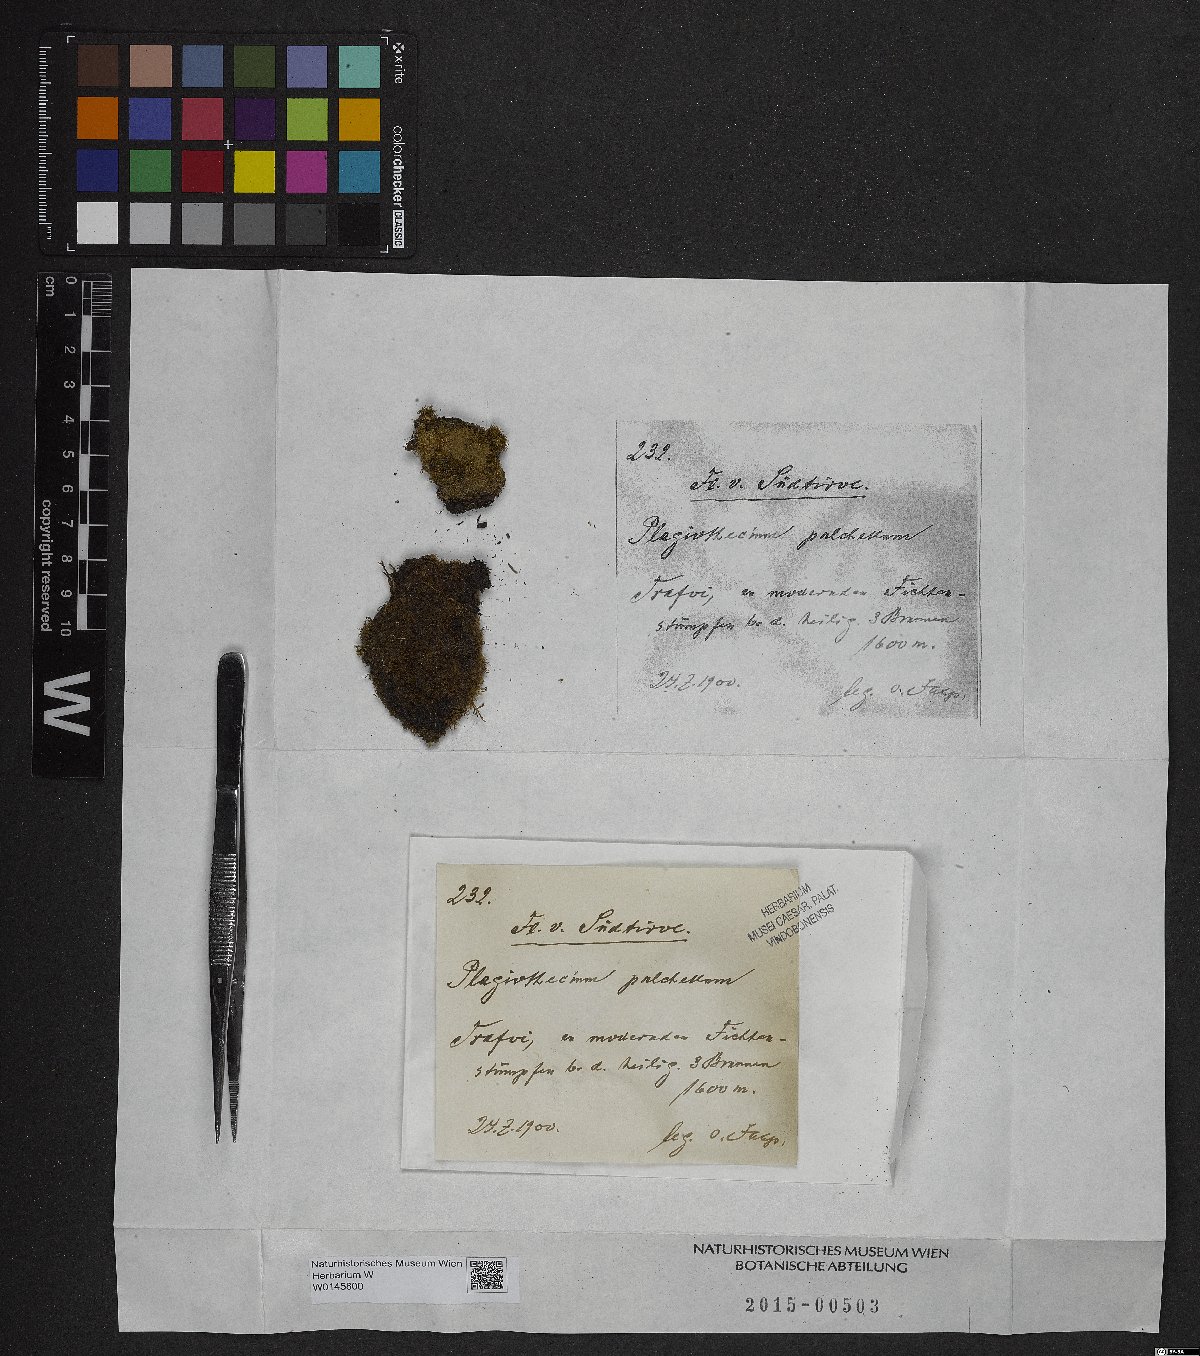 x-rite
colorchecker CLASSIC
mm
0 1 2 3 4 5 6 7 8 9 10
cm
copyright reserved
W
232.
Fl. v. Südtirol.
Plagiothecium pulchellum
Trafoi, an modernden Fichten-
stümpfen b. d. heilig. 3 Brunnen
1600 m.
1900.
leg. O. Jaap.
232.
Fl. v. Südtirol.
Plagiothecium pulchellum
Trafoi, an modernden Fichten-
stümpfen b. d. heilig. 3 Brunnen
1600 m.
1900.
leg. O. Jaap.
HERBARIUM
MUSEI CAESAR. PALAT.
VINDOBONENSIS
Naturhistorisches Museum Wien
Herbarium W
W0145600
NATURHISTORISCHES MUSEUM WIEN
BOTANISCHE ABTEILUNG
2015-00503